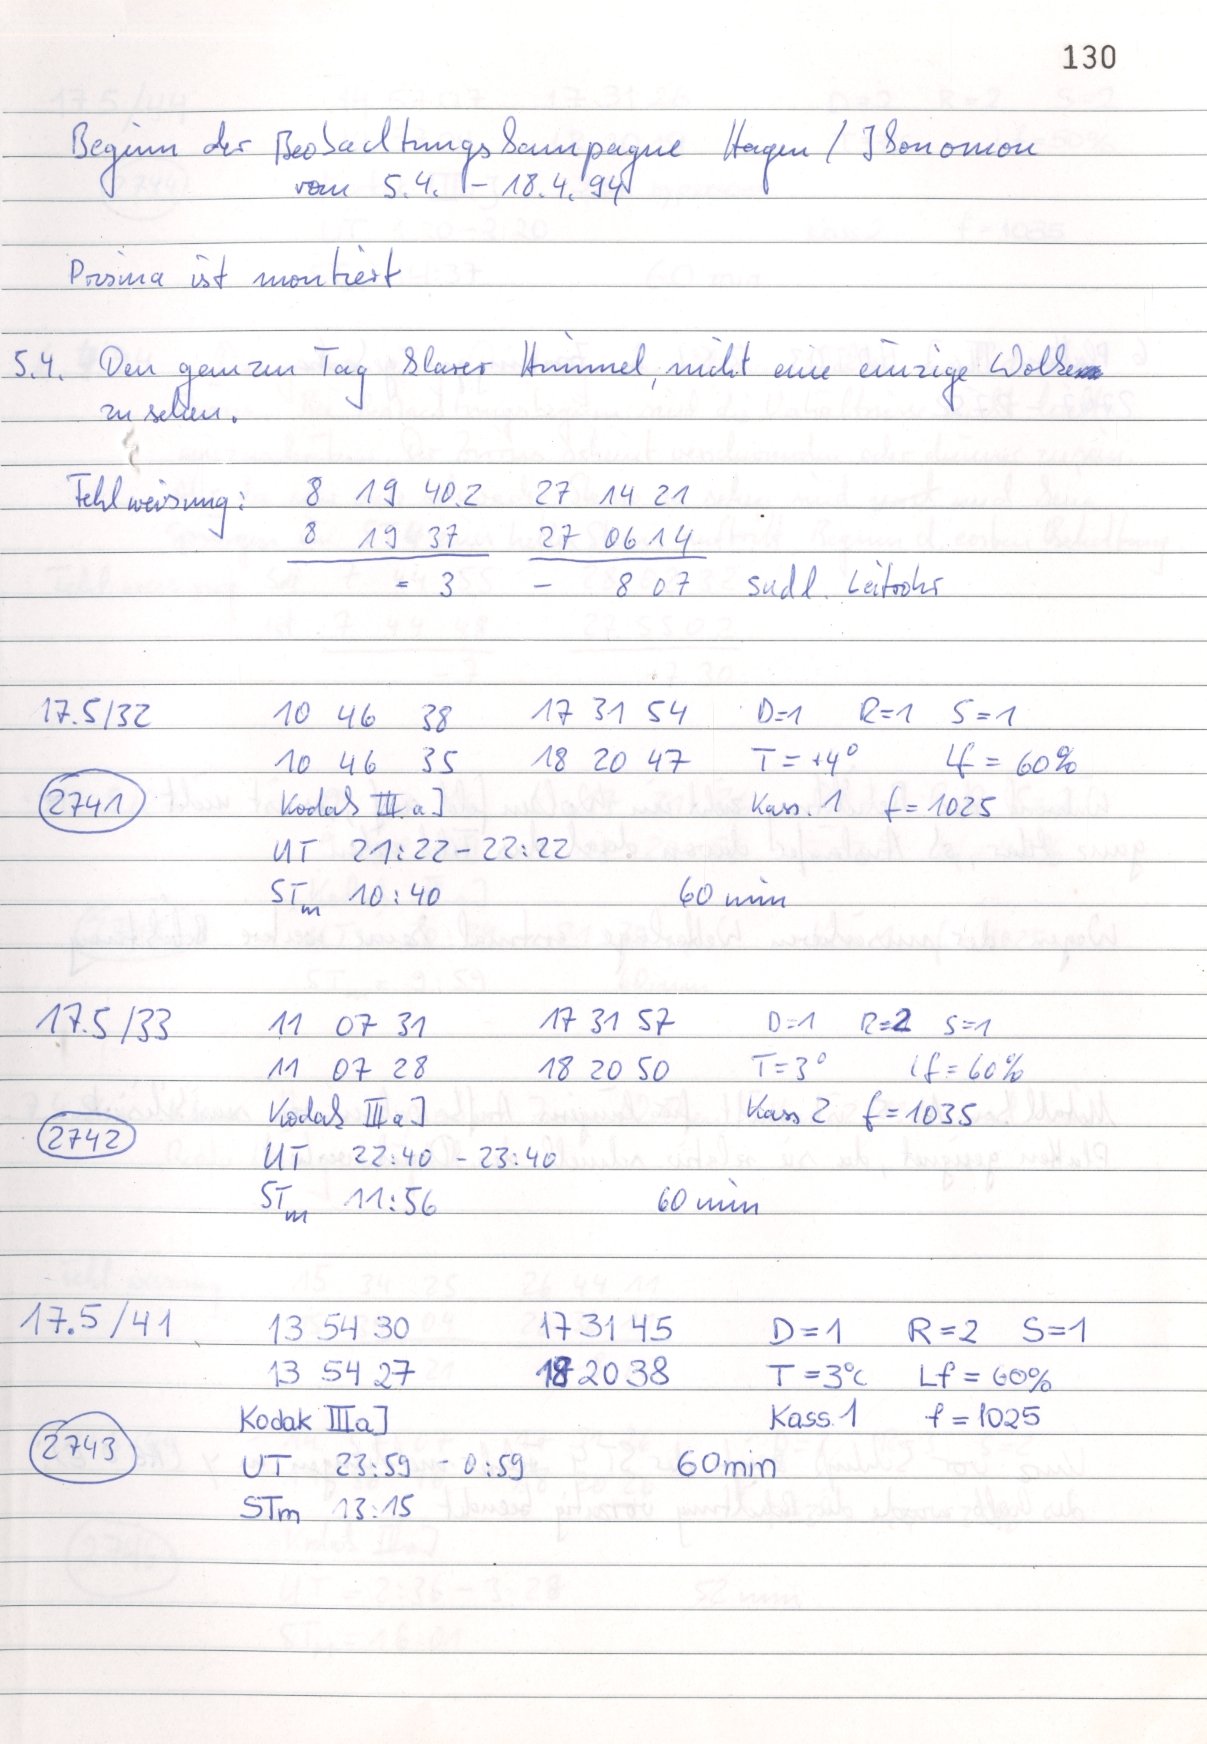 130
Beginn der Beobachtungskampagne Hagen / Ikonomou
vom 5.4. – 18.4.94
Prisma ist montiert
5.4. Den ganzen Tag klarer Himmel, nicht eine einzige Wolke
zu sehen.
Fehlweisung: 8 19 40.2 27 14 21
8 19 37 27 06 14
= 3 – 8 07 südl. Leitrohr
17.5/32 10 46 38 17 31 54 D=1 R=1 S=1
10 46 35 18 20 47 T = +4° Lf = 60%
2741 Kodak IIIaJ Kass. 1 f = 1025
UT 21:22 – 22:22
STm 10:40 60 min
17.5/33 11 07 31 17 31 57 D=1 R=2 S=1
11 07 28 18 20 50 T=3° Lf = 60%
2742 Kodak IIIaJ Kass 2 f = 1035
UT 22:40 – 23:40
STm 11:56 60 min
17.5/41 13 54 30 17 31 45 D=1 R=2 S=1
13 54 27 18 20 38 T=3°C Lf = 60%
2743 Kodak IIIaJ Kass. 1 f = 1025
UT 23:59 – 0:59 60min
STm 13:15